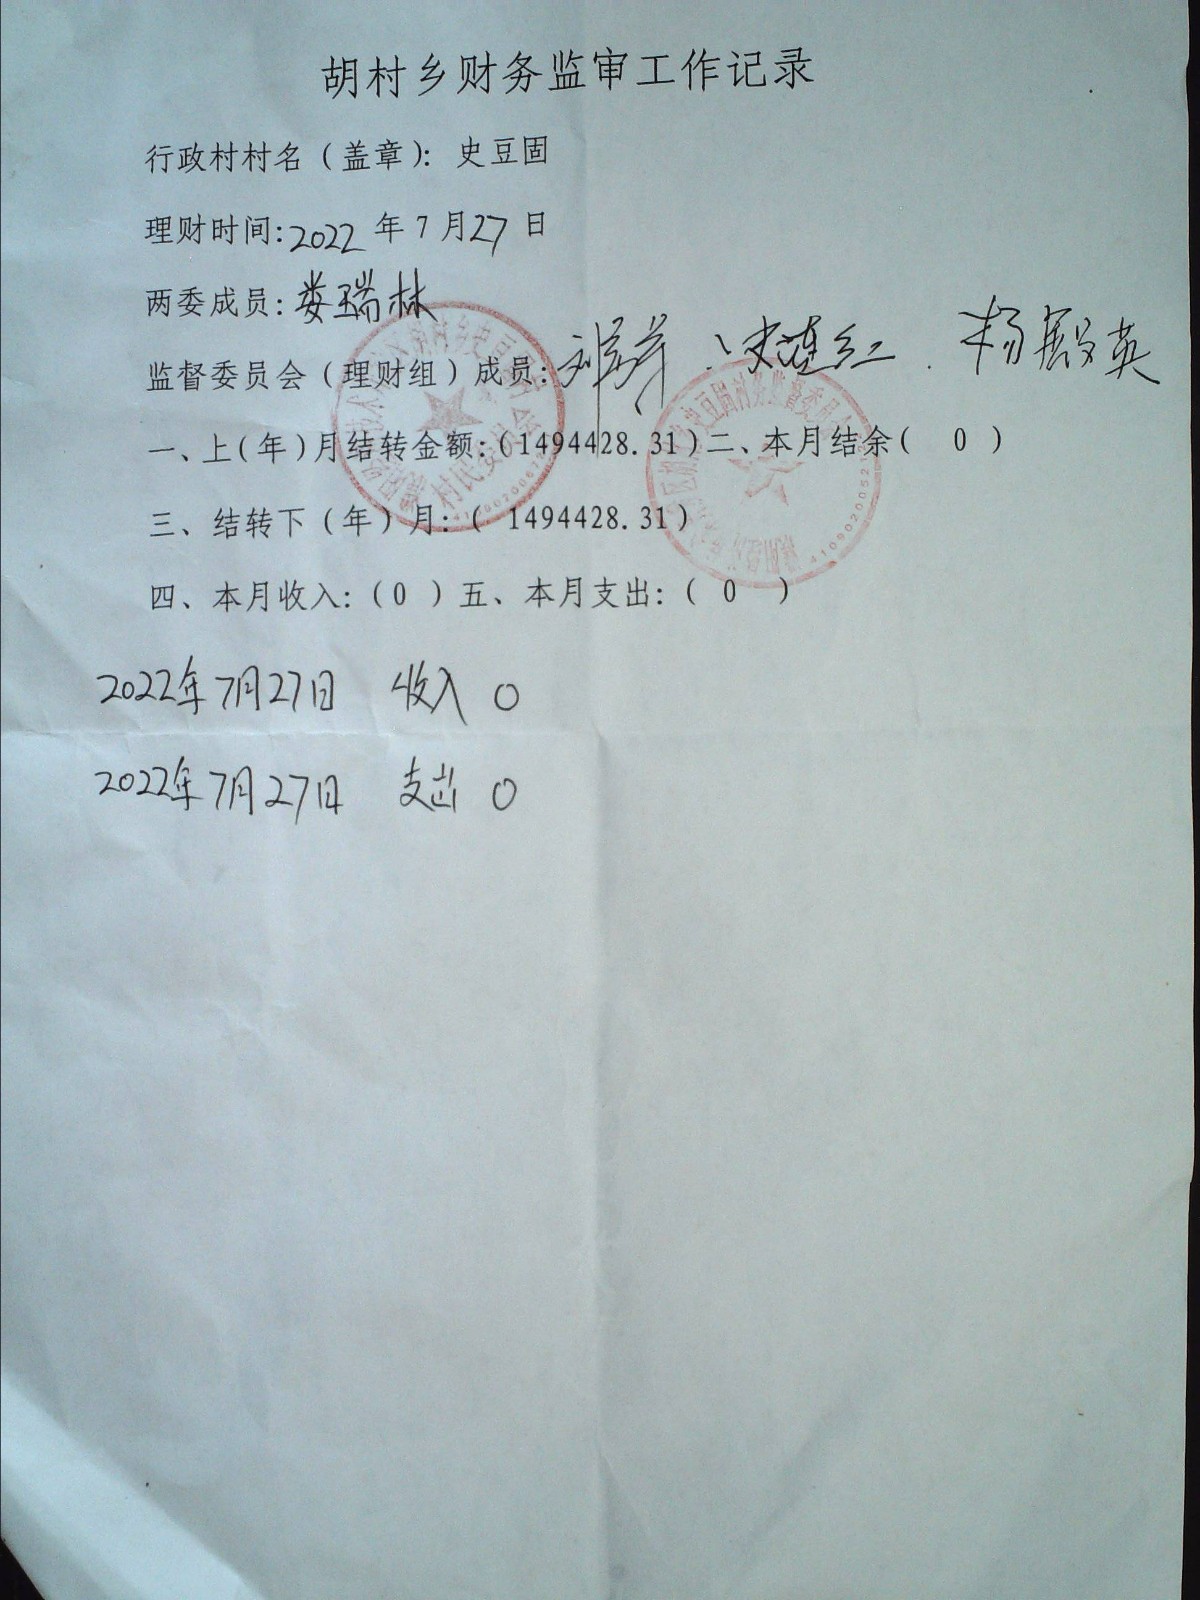 胡村乡财务监审工作记录
行政村村名（盖章）：史豆固
理财时间：2022年7月27日
两委成员：娄瑞林
监督委员会（理财组）成员： 史连红 杨殿英
一、上(年)月结转金额：(1494428.31)二、本月结余( 0 )
三、结转下（年）月：( 1494428.31)
四、本月收入：(0 )五、本月支出：( 0 )
2022年7月27日 收入 0
2022年7月27日 支出 0